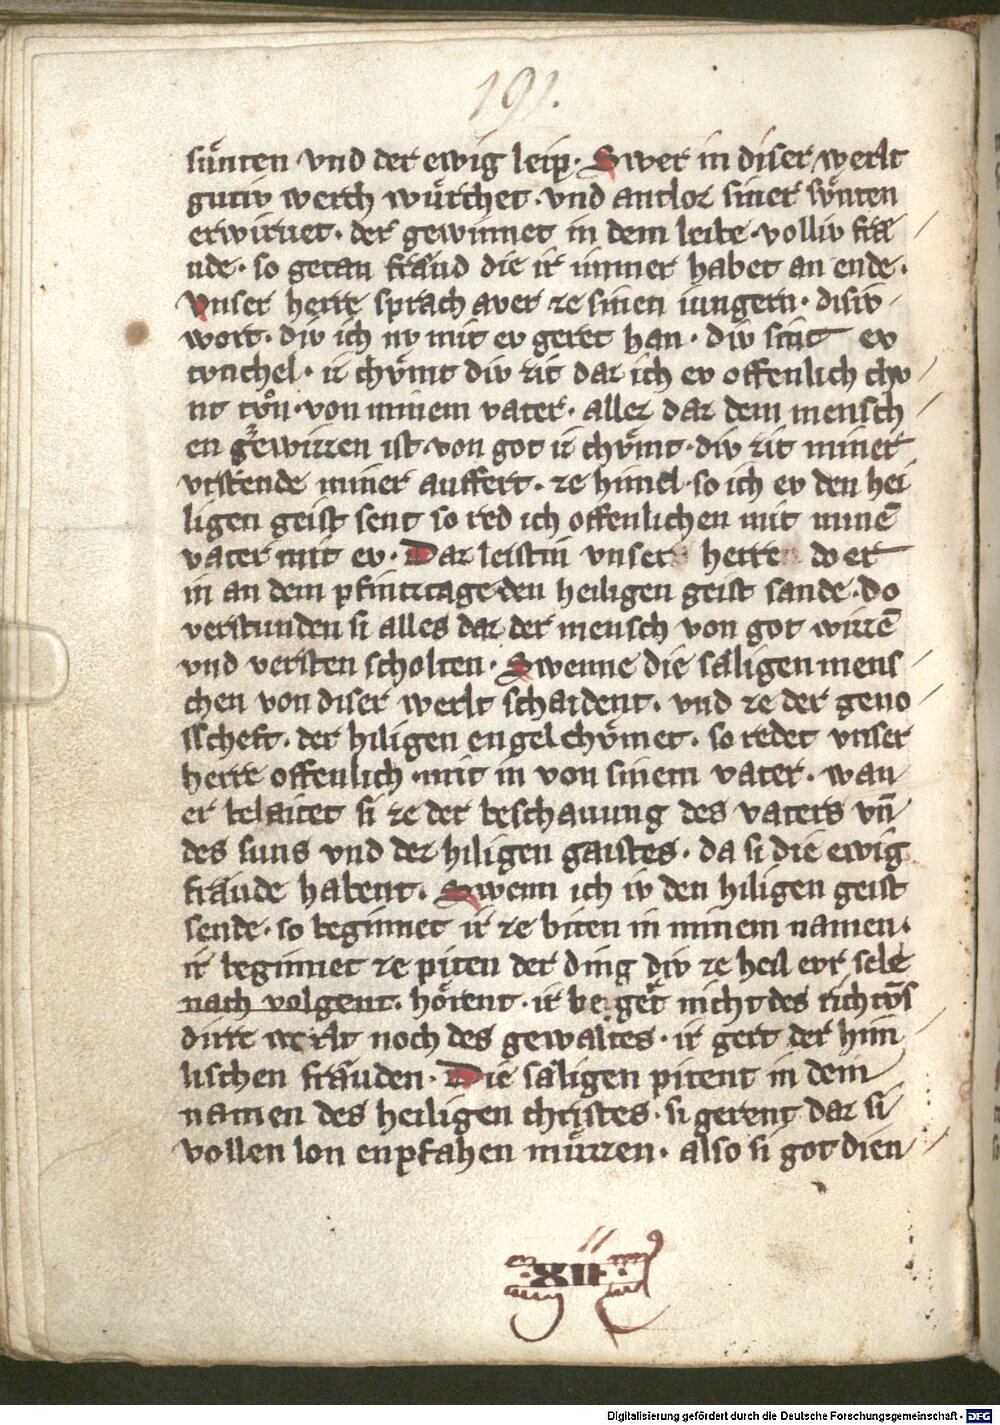 191.
sůnten vnd der ewig leip. Swer in diser werlt
gutiv werch wu̍rchet. vnd antloz siner sůnten
erwiruet. der gewinnet in dem leibe. volliv frä
ude. so getan fräud die ir immer habet an ende.
Vnser herre sprach aver ze sinen iungern. disiv
wort. div ich nv mit ev geret han. div sint ev
tvnchel. iz chůmt div zit daz ich ev offenlich chv
nt tůn. von minem vater. allez daz dem mensch
en zewizzen ist von got iz chůmt. div zit miner
vrstende miner auffert. ze himel. so ich ev den hei
ligen geist sent so red ich offenlichen mit minē
vater mit ev. Daz leistin vnser herre do er
in an dem pfinztage den heiligen geist sande. Do
verstunden si alles daz der mensch von got wizzē
vnd versten scholten. Swenne die säligen mens
chen von diser werlt schaident. vnd ze der geno
sscheft. der hiligen engel chůmet. so redet vnser
herre offenlich. mit in von sinem vater. wan
er belaitet si ze der beschauung des vaters vn̄
des suns vnd dez hiligen gaistes. da si die ewig
fräude habent. Swenn ich iv den hiligen geist
sende. so beginnet ir ze biten in minem namen.
ir beginnet ze piten der ding div ze heil evr sele
nach volgent. hörent. ir be get nicht des richtv̄s
dirr werlt noch des gewaltes. ir gert der him
lischen fräuden. Die säligen pitent in dem
namen des heiligen christes. si gerent daz si
vollen lon enpfahen můzzen. also si got dien
.XII.
Digitalisierung gefördert durch die Deutsche Forschungsgemeinschaft - DFG